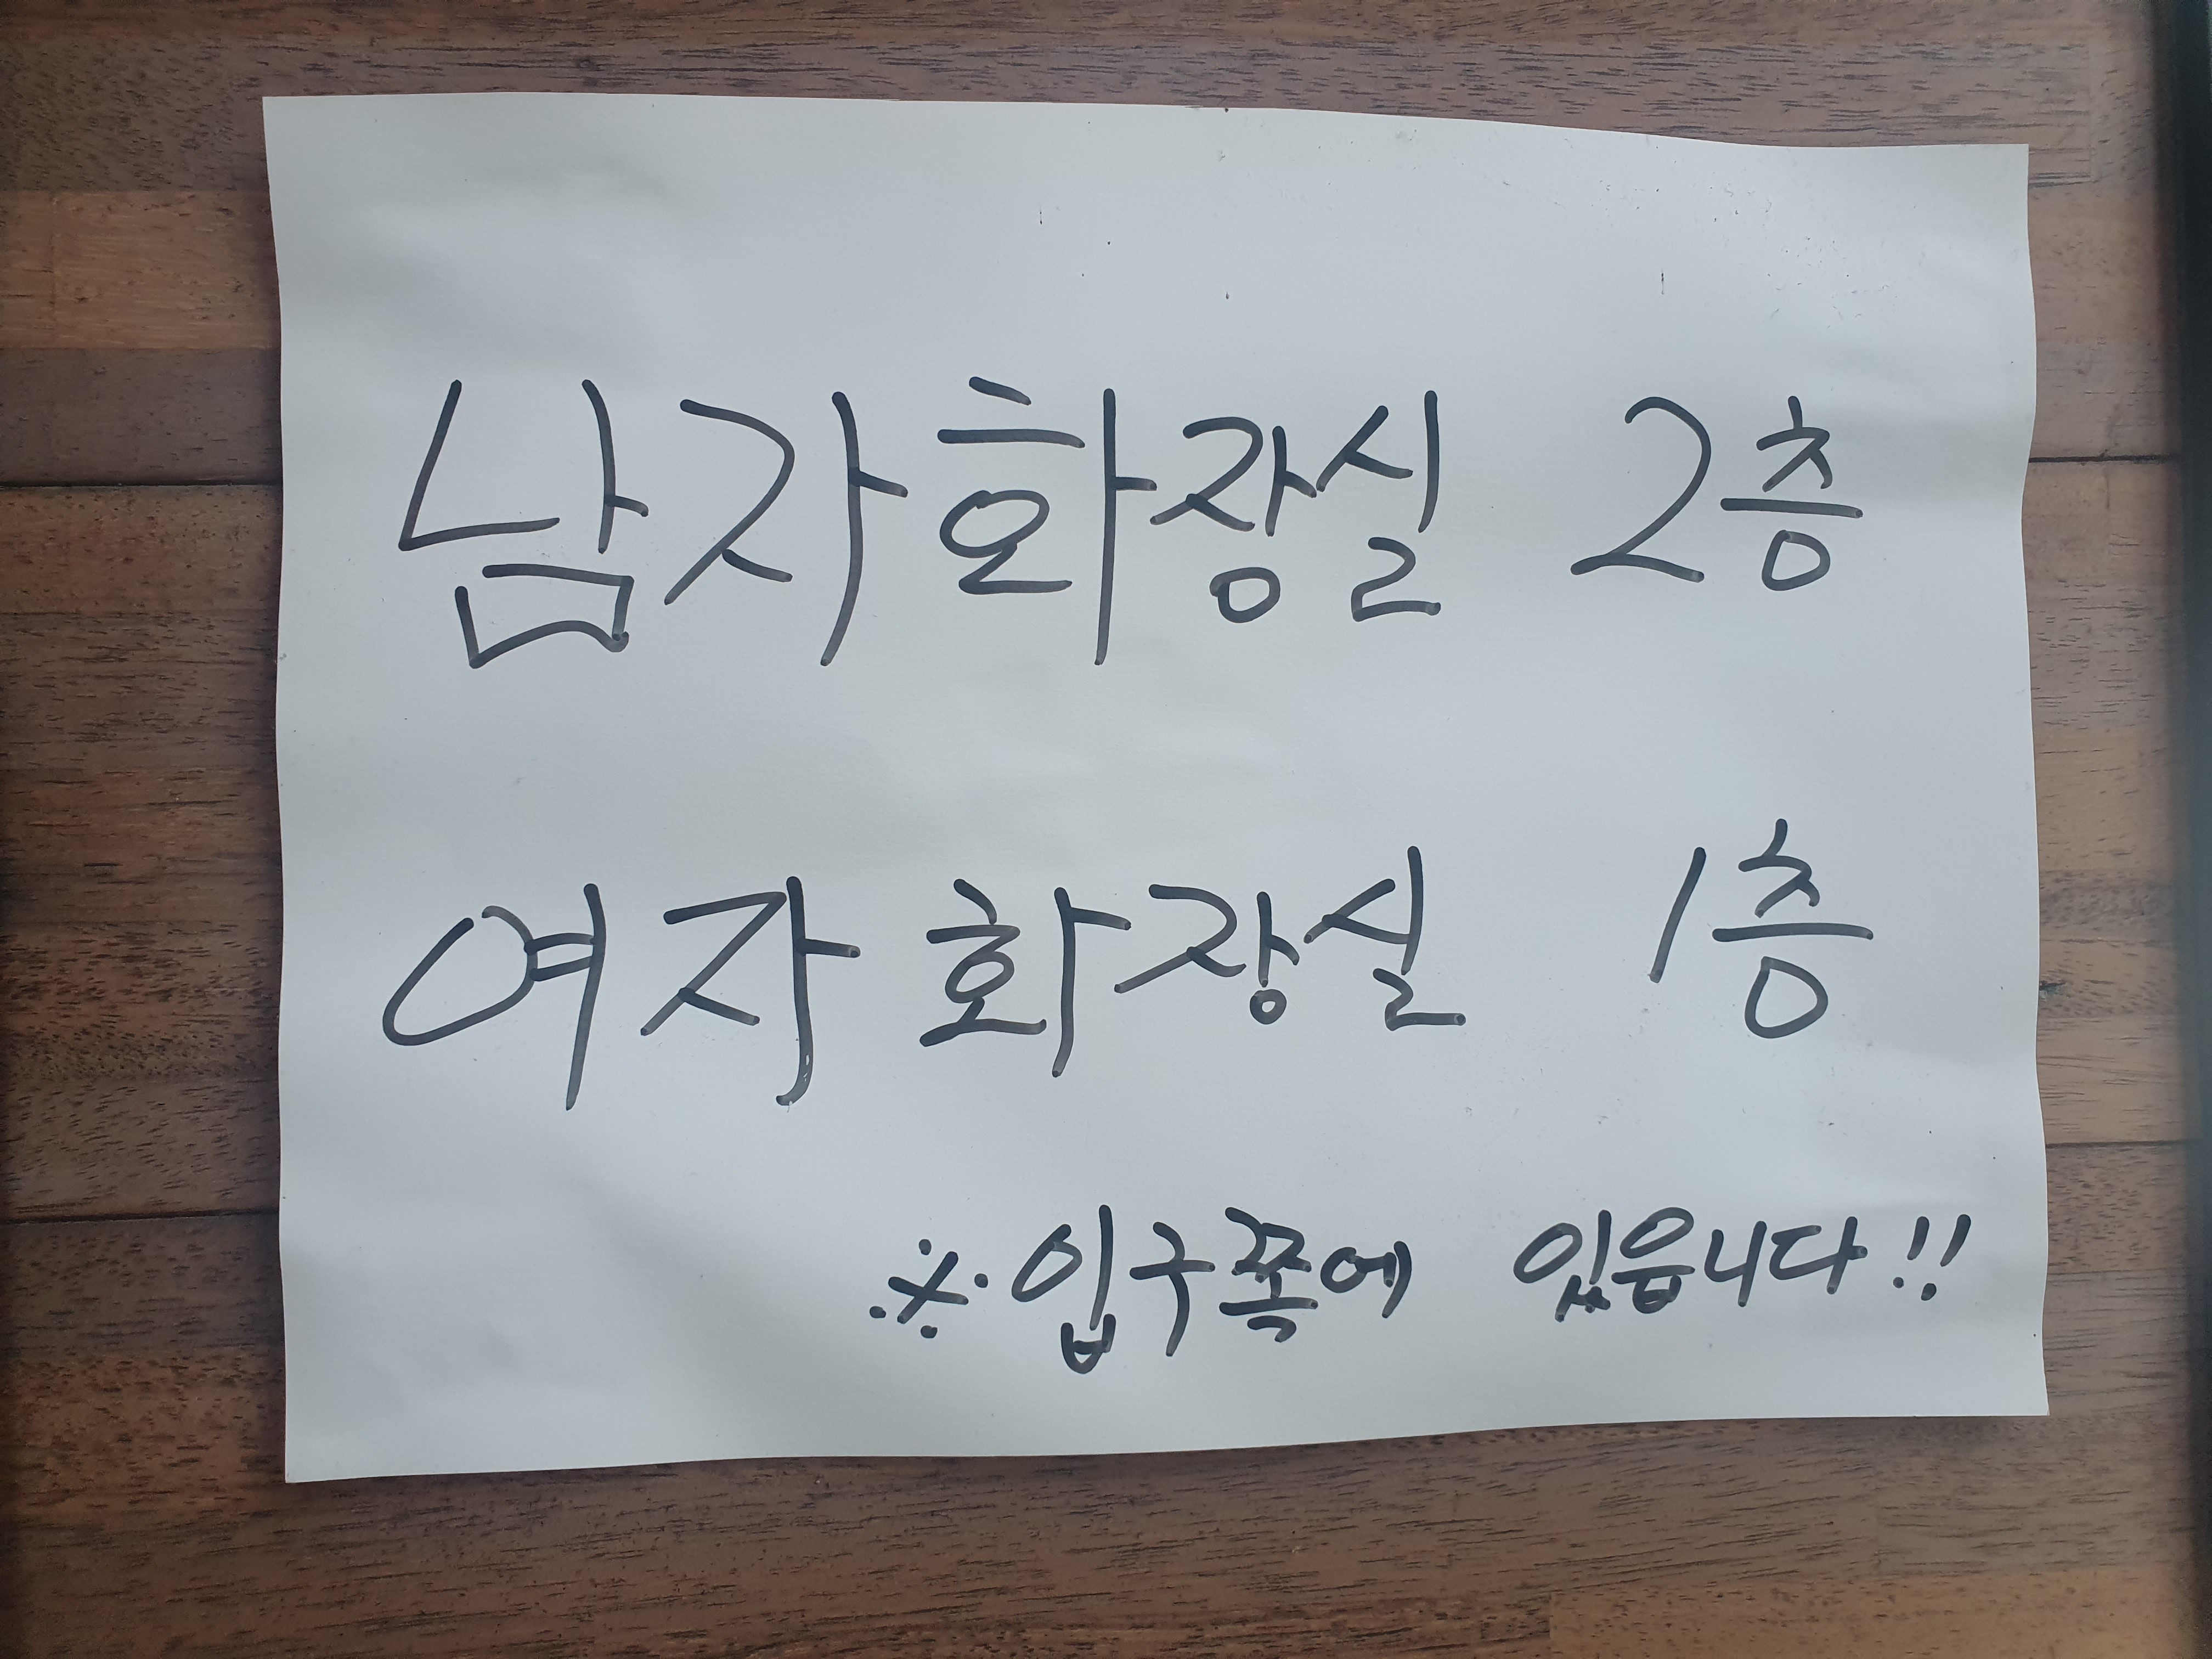 남자화장실 2층
여자 화장실 1층
※ 입구쪽에 있읍니다!!